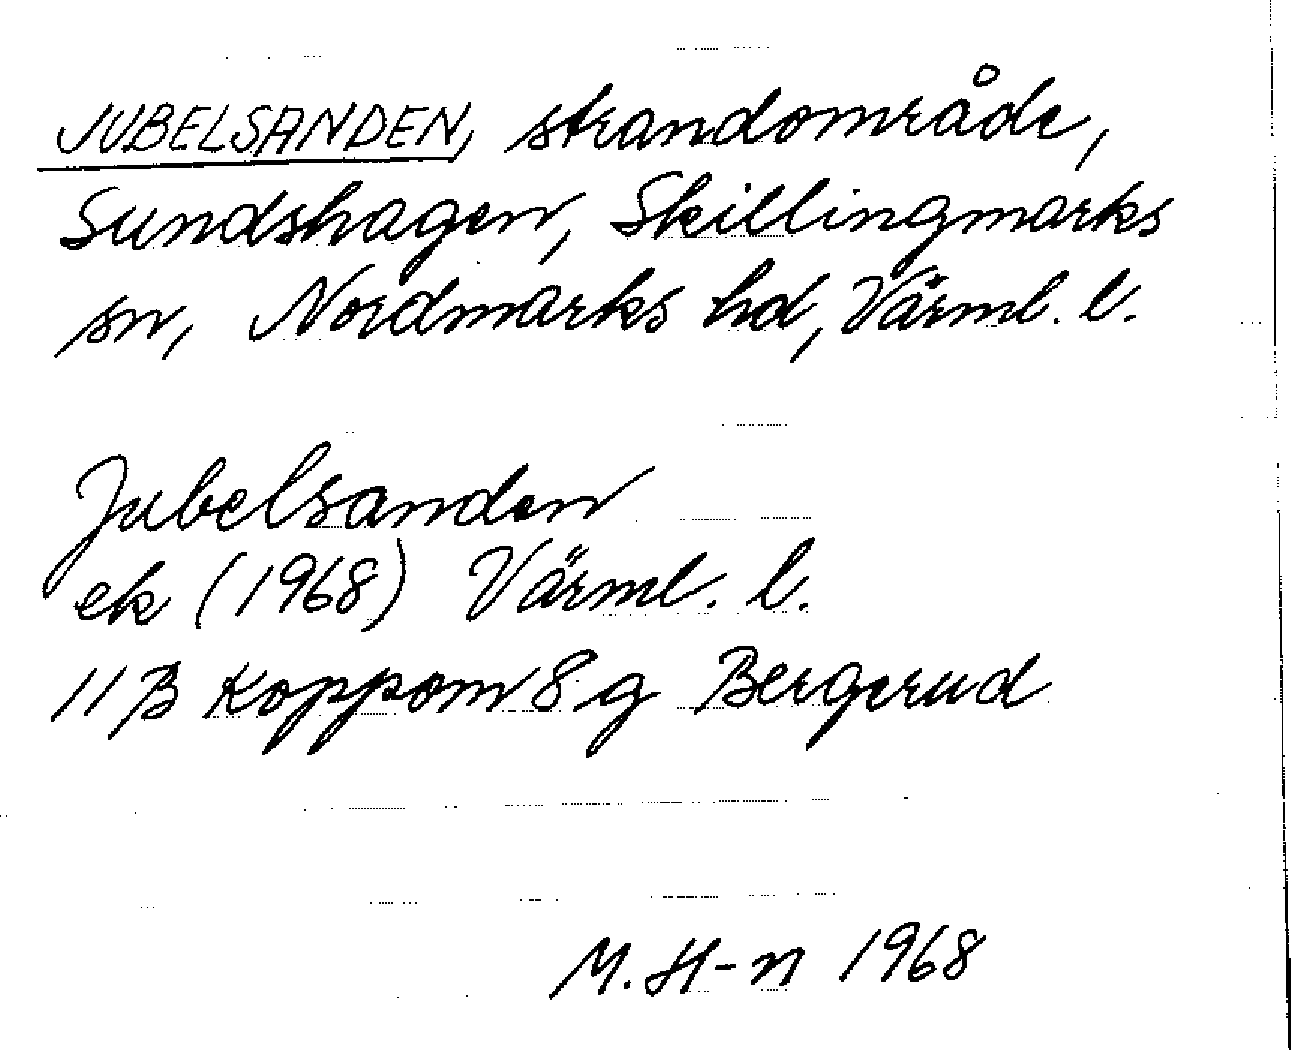 JUBELSANDEN, strandområde,
Sundshagen, Skillingmarks
sn, Nordmarks hd, Värml. l.
Jubelsanden
ek (1968) Värml. l.
11 B Koppom 8 g Bergerud
M. H-n 1968